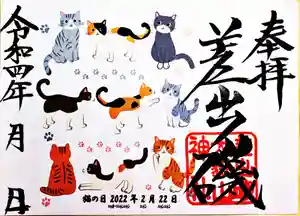 奉拝
差出磯
令和四年 月 日
猫の日 2022年2月22日